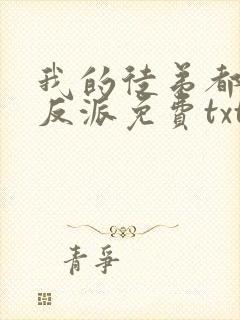 我的徒弟都
反派免費txt
青爭